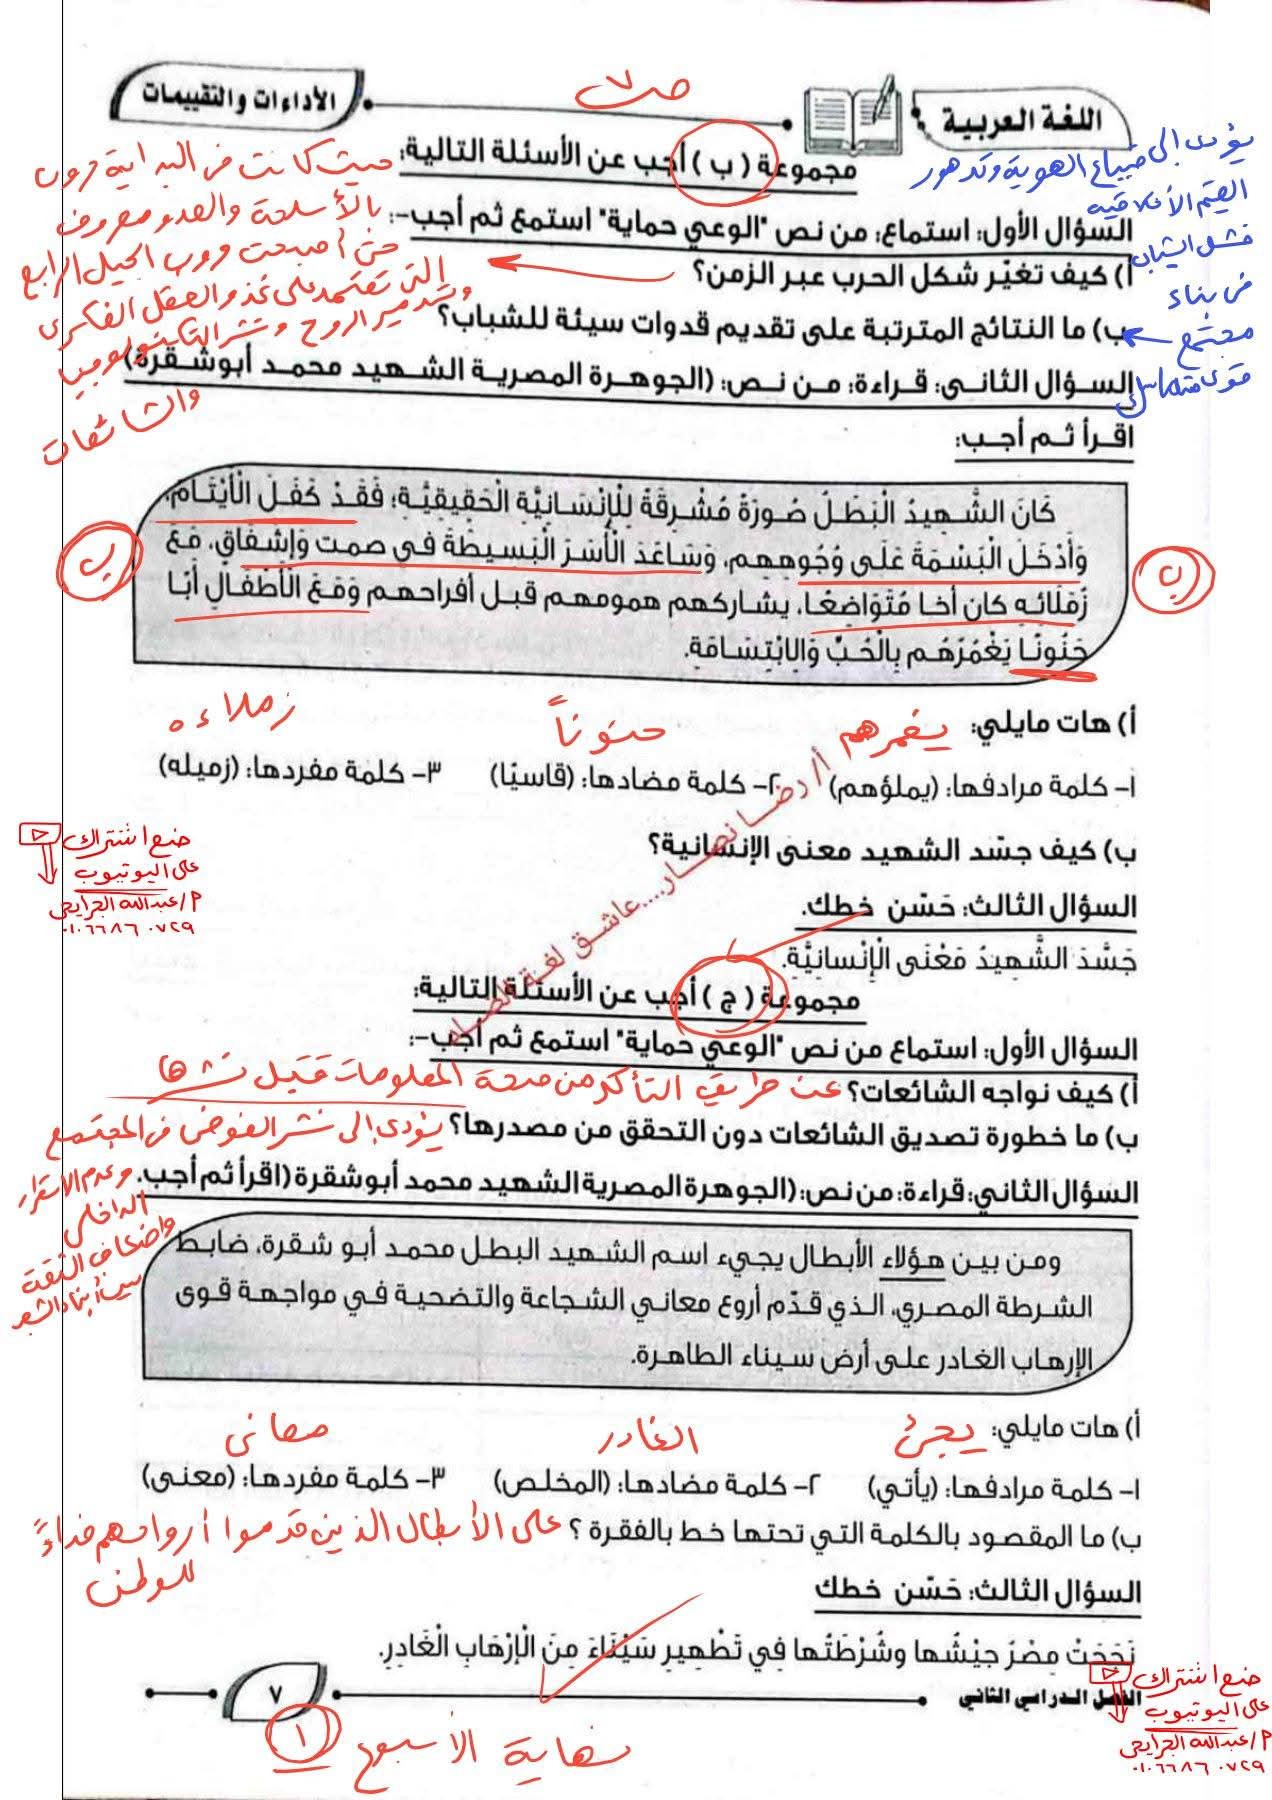 ص ٧
اللغة العربية
الأداءات والتقييمات
مجموعة ( ب ) أجب عن الأسئلة التالية:
السؤال الأول: استماع: من نص "الوعي حماية" استمع ثم أجب:-
أ) كيف تغيّر شكل الحرب عبر الزمن؟
حيث كانت فى البداية حروب
بالأسلحة والعدو معروف
حتى أصبحت حروب الجيل الرابع
التى تعتمد على غزو العقل الفكرى
وتدمير الروح ونشر التكنولوجيا
والشائعات
ب) ما النتائج المترتبة على تقديم قدوات سيئة للشباب؟
يؤدى إلى ضياع الهوية وتدهور
القيم الأخلاقية
فشل الشباب
فى بناء
مجتمع
قوى متماسك
السؤال الثاني: قراءة: من نص: (الجوهرة المصرية الشهيد محمد أبوشقرة)
اقرأ ثم أجب:
كَانَ الشَّهِيدُ الْبَطَلُ صُورَةً مُشْرِقَةً لِلْإِنْسَانِيَّةِ الْحَقِيقِيَّةِ؛ فَقَدْ كَفَلَ الْأَيْتَامَ،
وَأَدْخَلَ الْبَسْمَةَ عَلَى وُجُوهِهِم، وَسَاعَدَ الْأُسَرَ الْبَسِيطَةَ في صمت وَإِشْفَاقٍ، مَعَ
زُمَلَائِهِ كان أخا مُتَوَاضِعًا، يشاركهم همومهم قبل أفراحهم وَمَعَ الْأَطْفَالِ أَبًا
حَنُونًا يَغْمُرُهُم بِالْحُبِّ وَالِابْتِسَامَةِ.
ب
ب
أ) هات مايلي:
يغمرهم
حنوناً
زملاءه
١- كلمة مرادفها: (يملؤهم) ٢- كلمة مضادها: (قاسيًا) ٣- كلمة مفردها: (زميله)
ب) كيف جسّد الشهيد معنى الإنسانية؟
السؤال الثالث: حَسّن خطك.
جَسَّدَ الشَّهِيدُ مَعْنَى الْإِنْسَانِيَّةِ.
أ/ رضا نصار....عاشق لغة الضاد
ضع اشتراك
على اليوتيوب
م/عبدالله الجرايحى
٠١٠٦٦٨٦٠٧٢٩
مجموعة ( ج ) أجب عن الأسئلة التالية:
السؤال الأول: استماع من نص "الوعي حماية" استمع ثم أجب:-
أ) كيف نواجه الشائعات؟ عن طريق التأكد من صحة المعلومات قبل نشرها
ب) ما خطورة تصديق الشائعات دون التحقق من مصدرها؟ يؤدى إلى نشر الفوضى فى المجتمع
وعدم الاستقرار
الداخلى
واضعاف الثقة
بين أبناء الشعب
السؤال الثاني: قراءة: من نص: (الجوهرة المصرية الشهيد محمد أبوشقرة (اقرأ ثم أجب.
ومن بين هؤلاء الأبطال يجيء اسم الشهيد البطل محمد أبو شقرة، ضابط
الشرطة المصري، الذي قدّم أروع معاني الشجاعة والتضحية في مواجهة قوى
الإرهاب الغادر على أرض سيناء الطاهرة.
أ) هات مايلي:
يجئ
الغادر
معانى
١- كلمة مرادفها: (يأتي) ٢- كلمة مضادها: (المخلص) ٣- كلمة مفردها: (معنى)
ب) ما المقصود بالكلمة التي تحتها خط بالفقرة ؟ على الأبطال الذين قدموا أرواحهم فداءً
للوطن
السؤال الثالث: حَسّن خطك
نَجَحَتْ مِصْرُ جيْشُها وشُرْطَتُها فِي تَطْهِيرِ سَيْنَاءَ مِنَ الْإِرْهَابِ الْغَادِرِ.
الفصل الدراسي الثاني
٧
ضع اشتراك
على اليوتيوب
م/عبدالله الجرايحى
٠١٠٦٦٨٦٠٧٢٩
نهاية الأسبوع ١